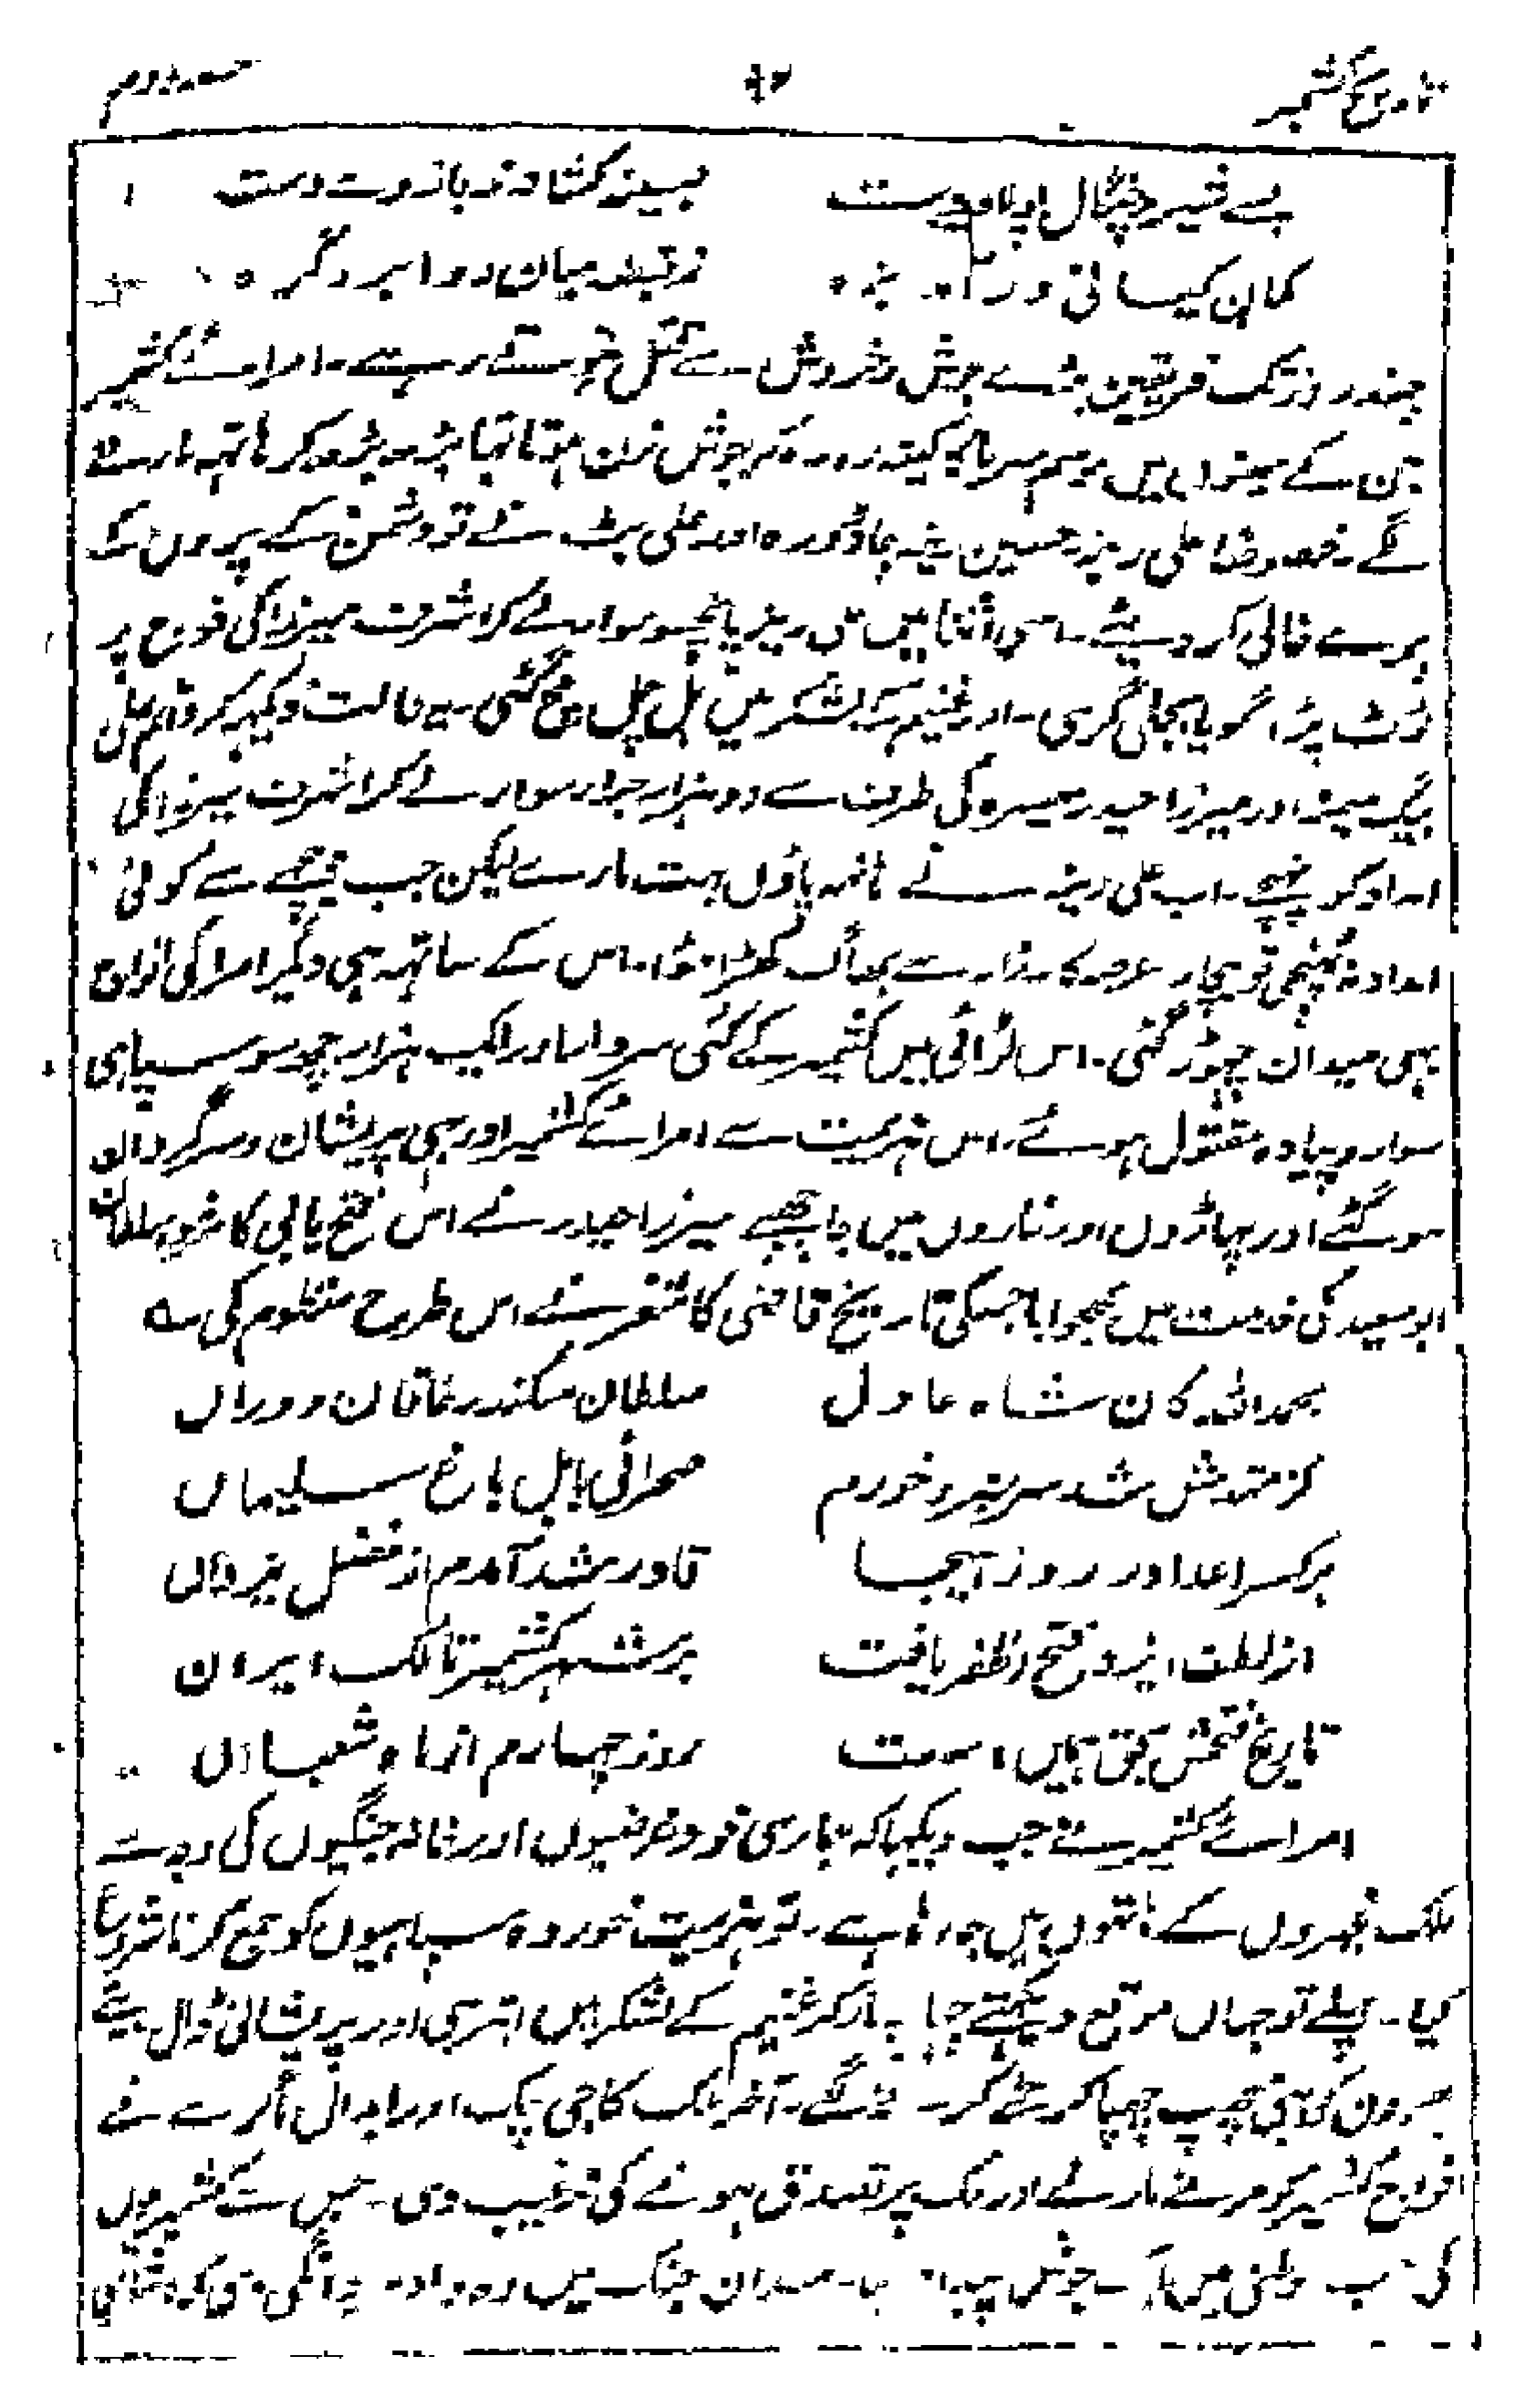 تاریخ کشمیر ۹۲ حصہ دوم
پے خنجر چنگال بسینہ کشادند بازو دست
کمان کیانی در زہ میان دو ابرو گرہ
چند روز تک فریقین بڑے جوش و خروش سے رہے۔ امرائے کشمیر
جن کے سینوں میں جوش زن ہوتا تہا بڑھ بڑھ کر ہاتہہ مارنے
لگے خصوصاً علی رینہ حسین جاڈورہ اور علی بٹ نے تو دشمن کے پروں کے
پرے خالی کر دیئے۔ اسی اثنا میں علی رینہ پانچسو سوار لے کر اشرف میرزا کی فوج پر
ٹوٹ پڑا۔ گویا بجلی گری۔ اور غنیم کے لشکر میں ہل چل مچ گئی۔ یہ حالت دیکہہ کر دائم علی
بیگ میمنہ اور میرزا حیدر میسرہ کی طرف سے دو ہزار جرار سوار لے کر اشرف میرزا کی
امداد کو پہنچے۔ اب علی رینہ نے ہاتہہ پاؤں بہت مارے لیکن جب پیچھے سے کوئی
امداد نہ پہنچی تو بچارہ عرصہ کارزار سے بھاگ کھڑا ہوا۔ اس کے ساتہہ ہی دیگر امرا کی افواج
بہی میدان چہوڑ گئی۔ اس لڑائی میں کشمیر کے کئی سردار اور ایک ہزار چھ سو سپاہی
سوار و پیادہ مقتول ہوئے۔ اس ہزیمت سے امرائے کشمیر اور بہی پریشان و سرگردان
ہو گئے اور پہاڑوں اور غاروں میں جا چھپے میرزا حیدر نے اس فتح یابی کا مژدہ سلطان
ابو سعید کی خدمت میں بھجوایا جسکی تاریخ قاضی کاشغر نے اس طرح منظوم کی ؎
بحمد اللہ کان شاہ عادل سلطان سکندر خاقان دوراں
از مقدمش شد سرسبز و خورم صحرائی بابل باغ سلیماں
برکسر اعدا در روز ہیجا قادر شد آندم از فضل یزداں
از لطف ایزد فتح و ظفر یافت بر شہر کشمیر تا ملک ایران
تاریخ فتحش بحق ہمیں است روز چہارم از ماہ شعباں
امرائے کشمیر نے جب دیکہا کہ ہماری خود غرضیوں اور خانہ جنگیوں کی وجہ سے
ملک غیروں کے ہاتھوں میں جا رہا ہے۔ تو ہزیمت خوردہ سپاہیوں کو جمع کرنا شروع
کیا۔ پہلے تو جہاں موقع دیکہتے چہاپہ مار کر غنیم کے لشکر میں ابتری اور پریشانی ڈال دیتے
دن چہپ چہپا کر حملے کرنے لگے۔ آخر ملک کاجی چک اور ابدال ماگرے نے
افواج کشمیر کو مرنے مارنے اور ملک پر تصدق ہونے کی ترغیب دی۔ جس سے کشمیریوں
کی حب وطنی میں ایک جوش پیدا ہوا۔ میدان جنگ میں وہ داد مردانگی دی کہ